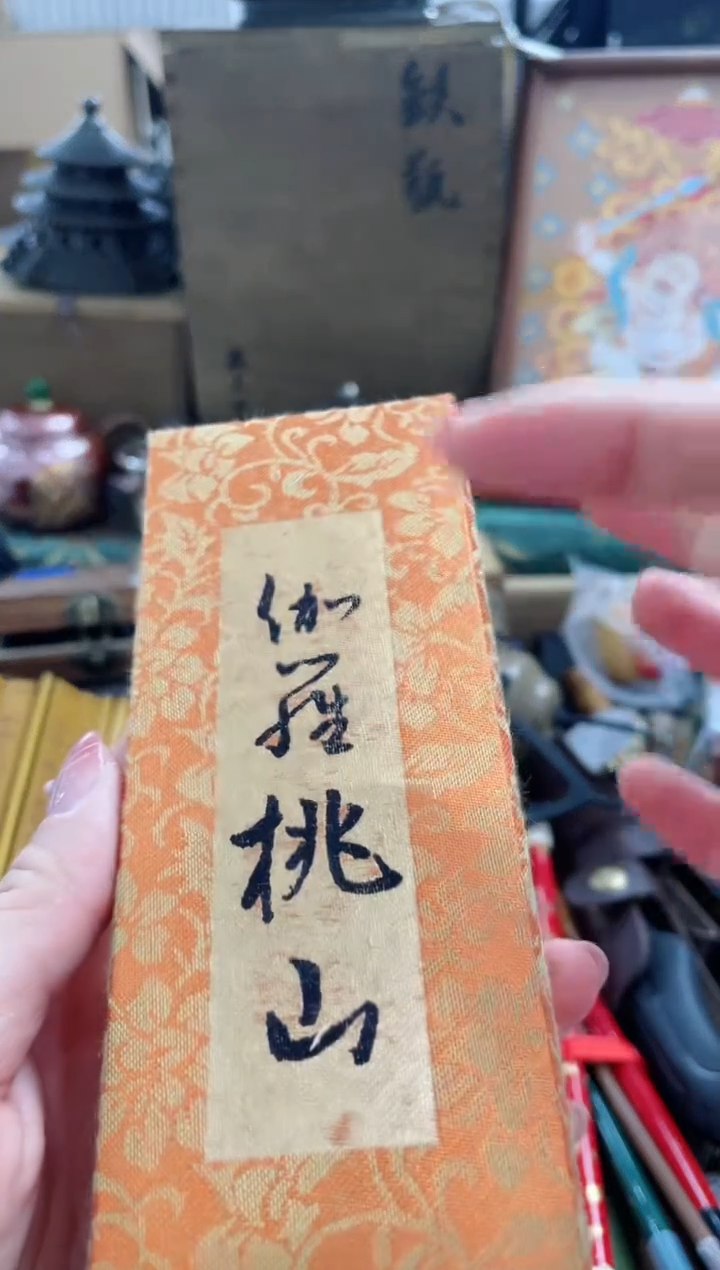 鉄瓶
伽羅桃山